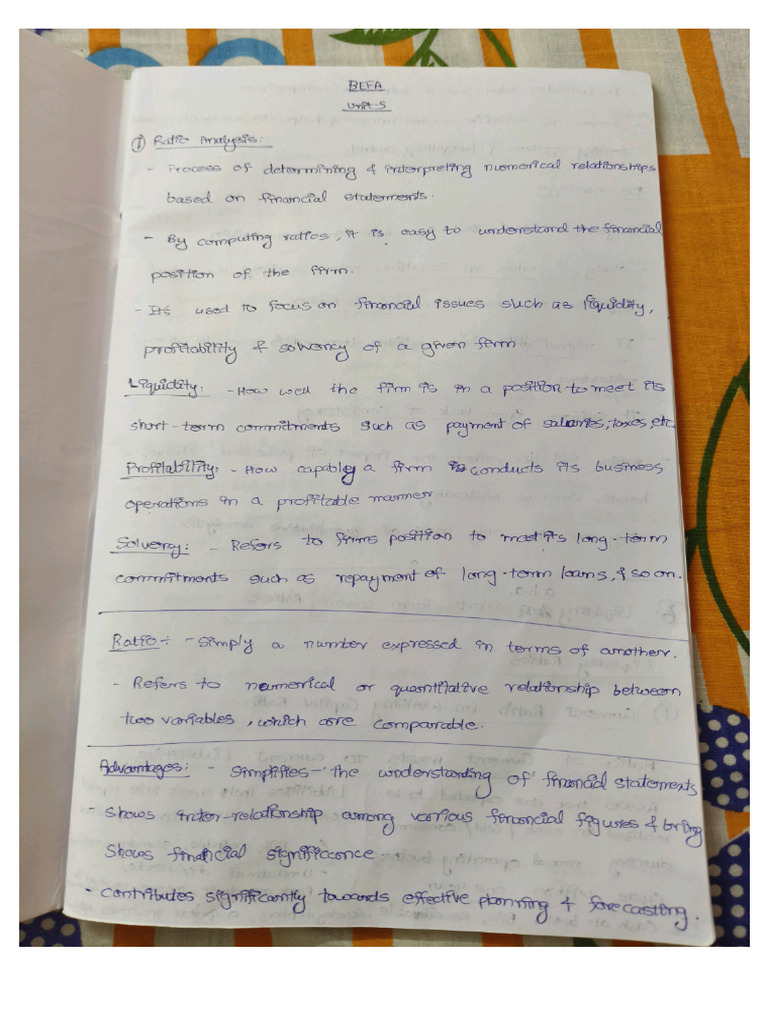 BEFA
Unit-5
① Ratio Analysis:
- Process of determining & interpreting numerical relationships
based on financial statements.
- By computing ratios, it is easy to understand the financial
position of the firm.
- Its used to focus on financial issues such as liquidity,
profitability & solvency of a given form
Liquidity: - How well the firm is in a position to meet its
short-term commitments such as payment of salaries, taxes, etc
Profitability: - How capably a firm is conducts its business
operations in a profitable manner
Solvency: - Refers to firms position to meet its long-term
commitments such as repayment of long-term loans, & so on.
Ratio :- - Simply a number expressed in terms of another.
- Refers to numerical or quantitative relationship between
two variables, which are comparable.
Advantages: - Simplifies the understanding of financial statements
- Shows inter-relationship among various financial figures & bring
shows financial significance.
- Contributes significantly towards effective planning & forecasting.